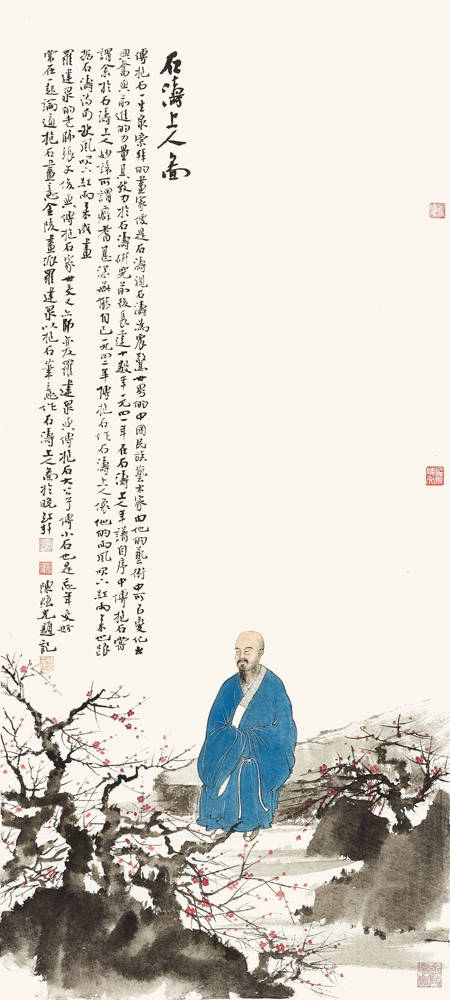 石濤上人圖
傅抱石一生最崇拜的畫家便是石濤視石濤為震驚世界的中國民族藝術家由他的藝術中可以變化出
興奮與前進的力量且致力於石濤研究前後長達十數年一九四一年在石濤上人年譜自序中傅抱石嘗
謂余於石濤上人妙諦可謂癖嗜甚深無能自已一九四二年傅抱石作石濤上人像他的
抱石濤詩句秋風吹下紅雨來成畫
羅建泉的老師張文俊與傅抱石家世交亦師亦友羅建泉與傅抱石大公子傅小石也是忘年交好
常在一起論道抱石畫意金陵畫派羅建泉以抱石筆意作石濤上人圖於晚
陳 光題記